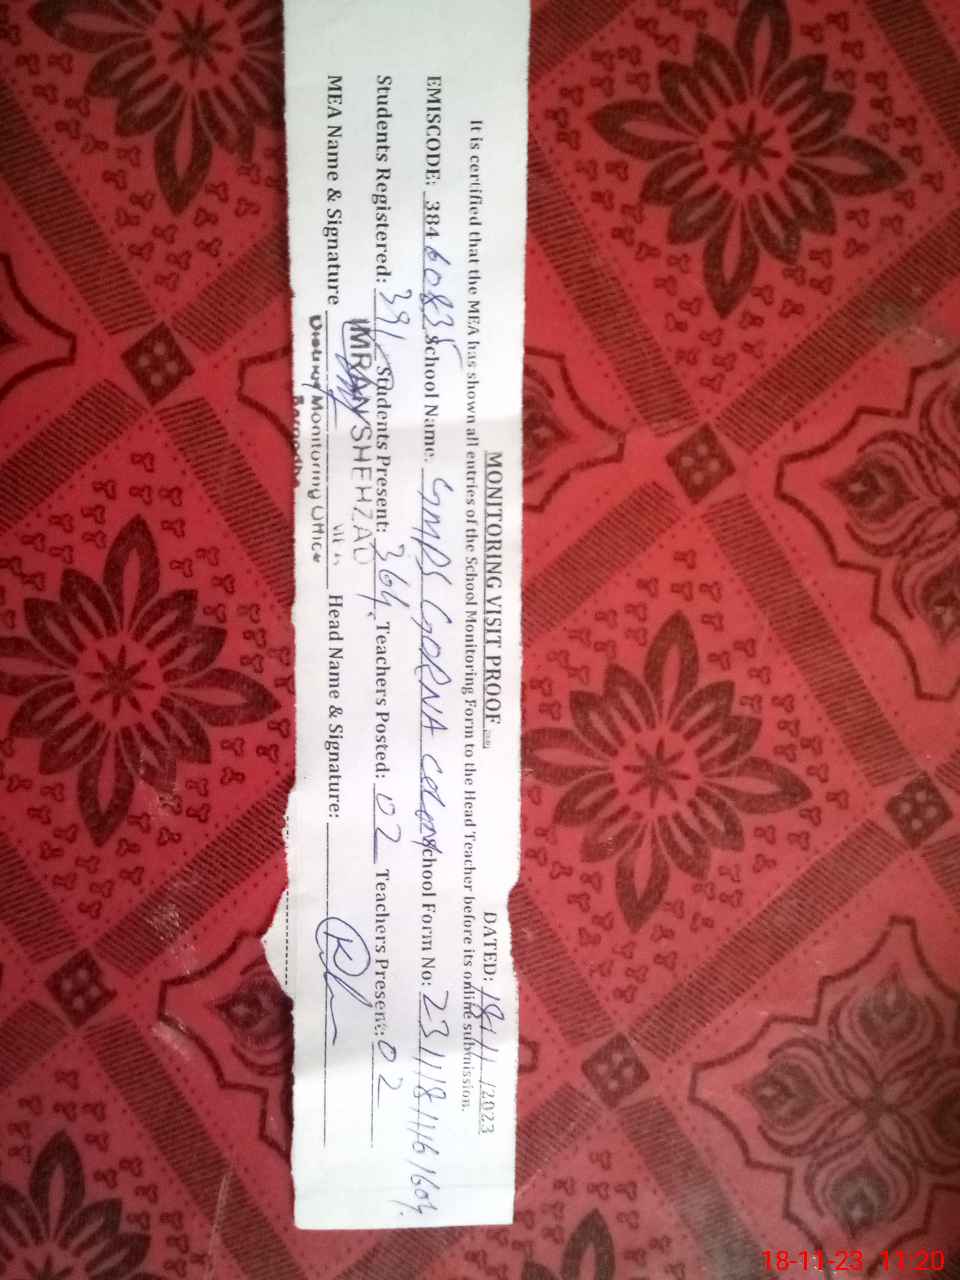 MONITORING VISIT PROOF DATED: 18/11/2023
It is certified that the MEA has shown all entries of the School Monitoring Form to the Head Teacher before its online submission.
EMISCODE: 38460835 School Name: GMPS GORNA School Form No:
Students Registered: 391 Students Present: 364 Teachers Posted: 02 Teachers Present: 02
MEA Name & Signature Head Name & Signature:
IMRAN SHEHZAD
District Monitoring Office
18-11-23 11:20